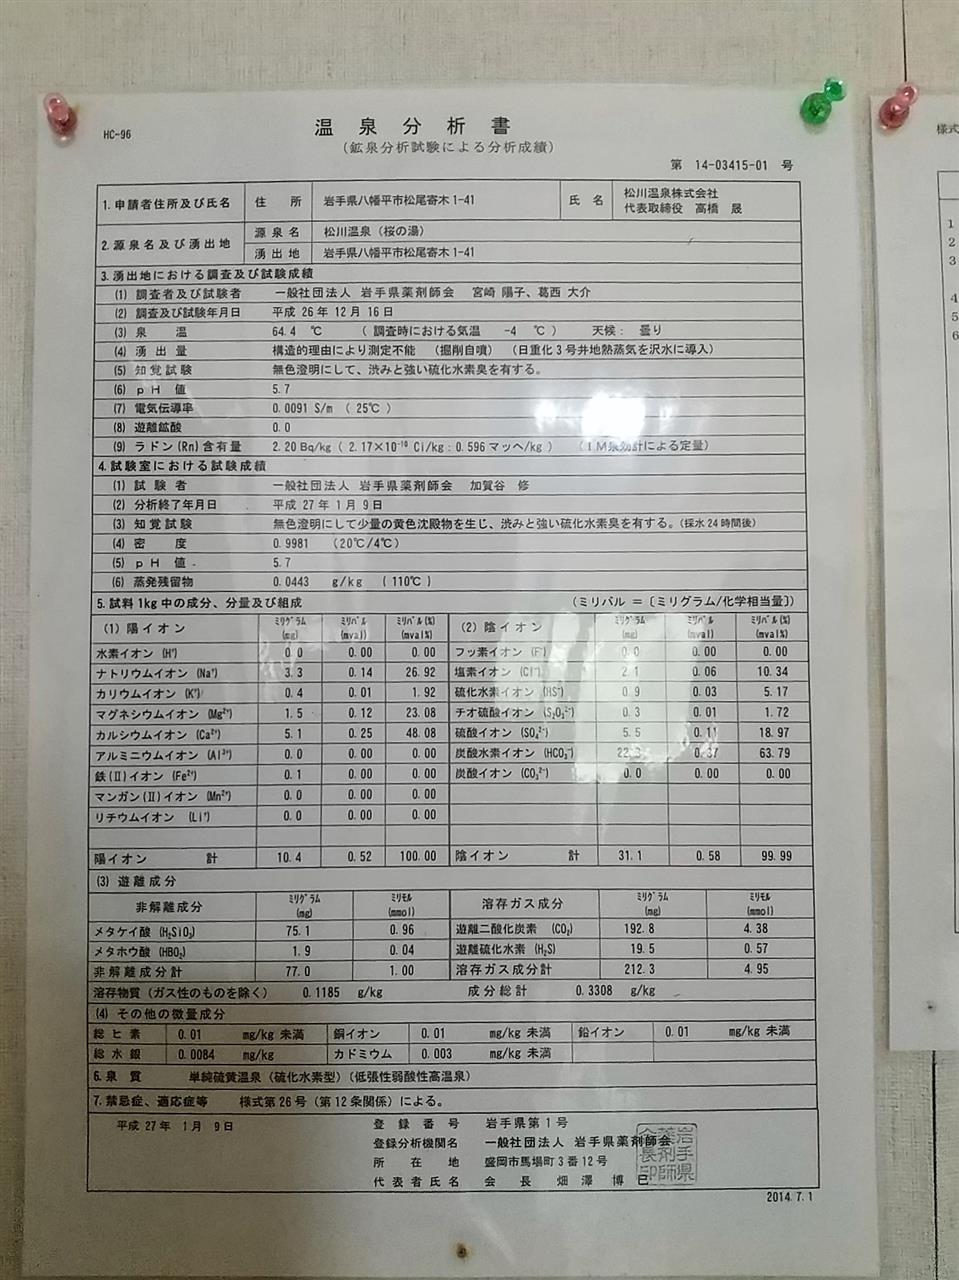 HC-96
温泉分析書
(鉱泉分析試験による分析成績)
第 14-03415-01 号
1.申請者住所及び氏名 住所 岩手県八幡平市松尾寄木1-41 氏名 松川温泉株式会社
代表取締役 高橋 晟
2.源泉名及び湧出地 源泉名 松川温泉(桜の湯)
湧出地 岩手県八幡平市松尾寄木1-41
3.湧出地における調査及び試験成績
(1) 調査者及び試験者 一般社団法人 岩手県薬剤師会 宮崎 陽子、葛西 大介
(2) 調査及び試験年月日 平成 26年 12月 16日
(3) 泉温 64.4 ℃ ( 調査時における気温 -4 ℃ ) 天候: 曇り
(4) 湧出量 構造的理由により測定不能 (掘削自噴) (日重化3号井地熱蒸気を沢水に導入)
(5) 知覚試験 無色澄明にして、渋みと強い硫化水素臭を有する。
(6) pH値 5.7
(7) 電気伝導率 0.0091 S/m ( 25℃ )
(8) 遊離鉱酸 0.0
(9) ラドン(Rn)含有量 2.20 Bq/kg ( 2.17×10⁻¹⁰ Ci/kg : 0.596 マッヘ/kg ) (IM泉効計による定量)
4.試験室における試験成績
(1) 試験者 一般社団法人 岩手県薬剤師会 加賀谷 修
(2) 分析終了年月日 平成 27年 1月 9日
(3) 知覚試験 無色澄明にして少量の黄色沈殿物を生じ、渋みと強い硫化水素臭を有する。(採水24時間後)
(4) 密度 0.9981 (20℃/4℃)
(5) pH値 5.7
(6) 蒸発残留物 0.0443 g/kg ( 110℃ )
5.試料1kg中の成分、分量及び組成 (ミリバル = 〔ミリグラム/化学相当量〕)
(1) 陽イオン ミリグラム (mg) ミリバル (mval) ミリバル(%) (mval%) (2) 陰イオン ミリグラム (mg) ミリバル (mval) ミリバル(%) (mval%)
水素イオン (H⁺) 0.0 0.00 0.00 フッ素イオン (F⁻) 0.0 0.00 0.00
ナトリウムイオン (Na⁺) 3.3 0.14 26.92 塩素イオン (Cl⁻) 2.1 0.06 10.34
カリウムイオン (K⁺) 0.4 0.01 1.92 硫化水素イオン (HS⁻) 0.9 0.03 5.17
マグネシウムイオン (Mg²⁺) 1.5 0.12 23.08 チオ硫酸イオン (S₂O₃²⁻) 0.3 0.01 1.72
カルシウムイオン (Ca²⁺) 5.1 0.25 48.08 硫酸イオン (SO₄²⁻) 5.5 0.11 18.97
アルミニウムイオン (Al³⁺) 0.0 0.00 0.00 炭酸水素イオン (HCO₃⁻) 22.3 0.37 63.79
鉄(Ⅱ)イオン (Fe²⁺) 0.1 0.00 0.00 炭酸イオン (CO₃²⁻) 0.0 0.00 0.00
マンガン(Ⅱ)イオン (Mn²⁺) 0.0 0.00 0.00
リチウムイオン (Li⁺) 0.0 0.00 0.00
陽イオン 計 10.4 0.52 100.00 陰イオン 計 31.1 0.58 99.99
(3) 遊離成分
非解離成分 ミリグラム (mg) ミリモル (mmol) 溶存ガス成分 ミリグラム (mg) ミリモル (mmol)
メタケイ酸 (H₂SiO₃) 75.1 0.96 遊離二酸化炭素 (CO₂) 192.8 4.38
メタホウ酸 (HBO₂) 1.9 0.04 遊離硫化水素 (H₂S) 19.5 0.57
非解離成分計 77.0 1.00 溶存ガス成分計 212.3 4.95
溶存物質(ガス性のものを除く) 0.1185 g/kg 成分総計 0.3308 g/kg
(4) その他の微量成分
総ヒ素 0.01 mg/kg 未満 銅イオン 0.01 mg/kg 未満 鉛イオン 0.01 mg/kg 未満
総水銀 0.0084 mg/kg カドミウム 0.003 mg/kg 未満
6.泉質 単純硫黄温泉(硫化水素型)(低張性弱酸性高温泉)
7.禁忌症、適応症等 様式第26号(第12条関係)による。
平成 27年 1月 9日
登録番号 岩手県第1号
登録分析機関名 一般社団法人 岩手県薬剤師会
所在地 盛岡市馬場町3番12号
代表者氏名 会長 畑澤 博巳
岩手県薬剤師会長印
2014.7.1
様式
1
2
3
4
5
6